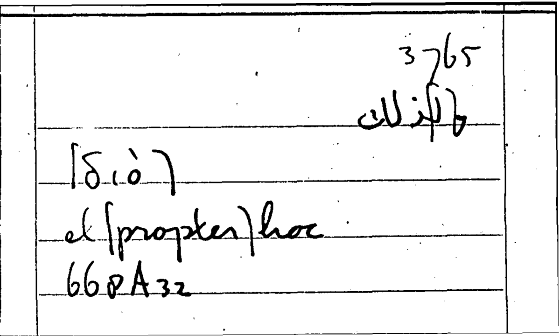 3765
ولذلك
[διὸ]
et [propter] hoc
668A32